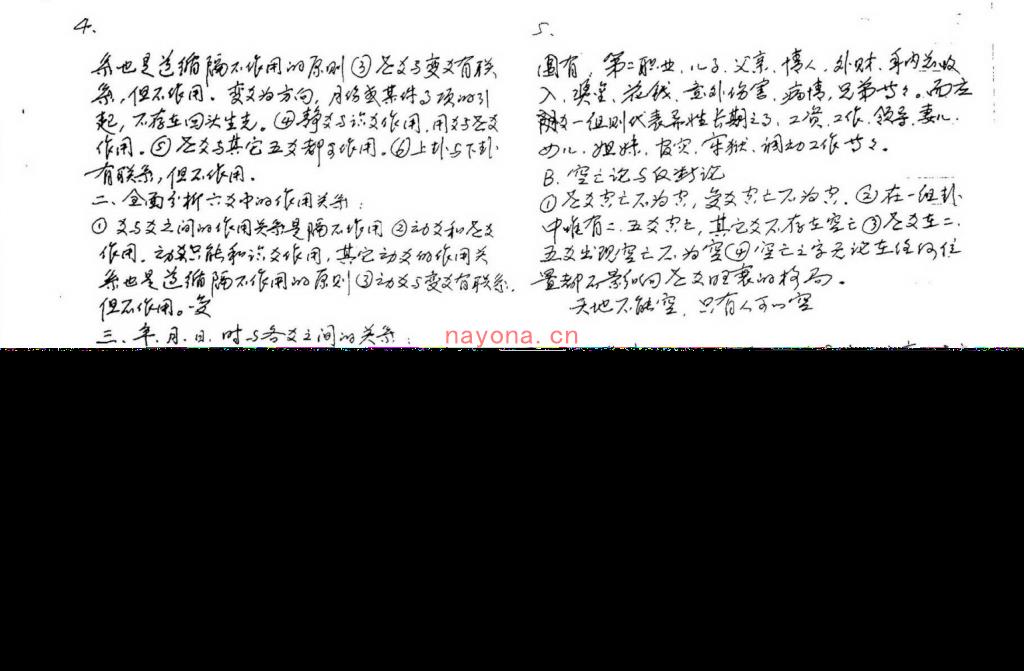 4.
系也是遵循隔不作用的原则③世爻与变爻有联
系,但不作用。变爻为方向,月份或某件事项的引
起,不存在回头生克。④静爻与识爻作用,用爻与世爻
作用。⑤世爻与其它五爻都可作用。⑥上卦与下卦
有联系,但不作用。
二、全面分析六爻中的作用关系:
①爻与爻之间的作用关系是隔不作用②动爻和世爻
作用。动爻只能和识爻作用,其它动爻的作用关
系也是遵循隔不作用的原则③动爻与变爻有联系,
但不作用。
三、年、月、日、时与各爻之间的关系:
5.
围有,第二职业,儿子,父亲,情人,外财,年内总收
入,奖金,花钱,意外伤害,病情,兄弟等。而在
阴爻一组则代表异性长期之事,工资,工作,领导,妻儿,
女儿,姐妹,投灾,牢狱,调动工作等。
B.空亡论与反断论
①世爻空亡不为空,变爻空亡不为空。②在一组卦
中唯有二、五爻空亡,其它爻不存在空亡③世爻在二、
五爻出现空亡不为空④空亡之字无论在任何位
置都不影响世爻旺衰的格局。
天地不能空,只有人可以空
nayona.cn